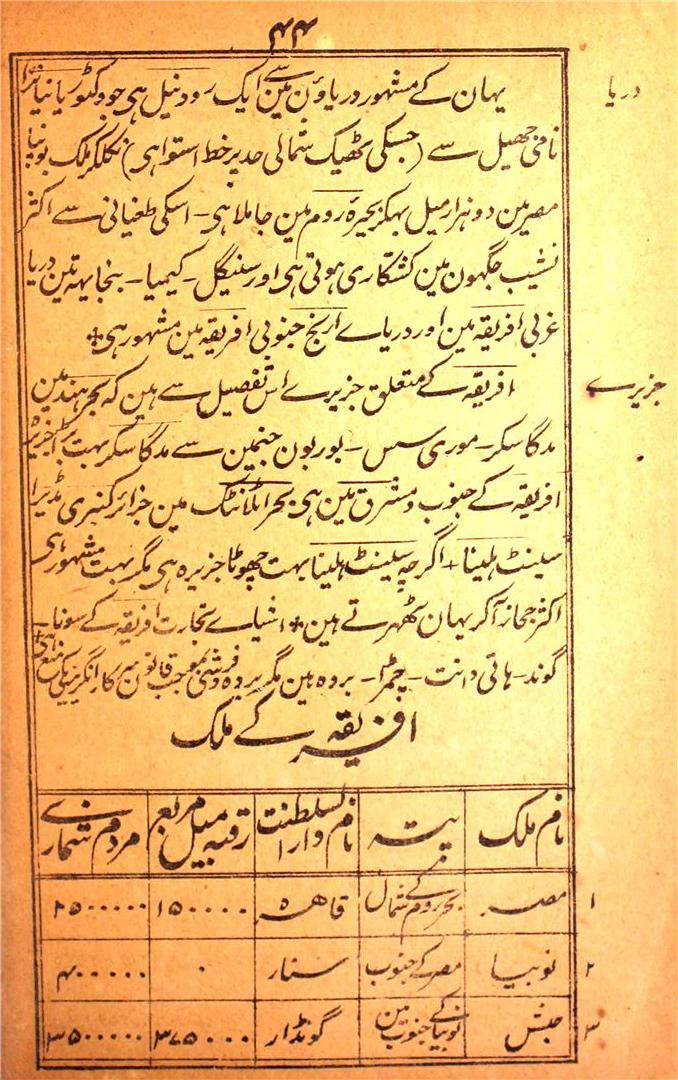 ۴۴
دریا
یہان کے مشہور دریاؤن مین سے ایک رود نیل ہی جو وکٹوریا نیانزا
نامی جھیل سے (جسکی ٹھیک شمالی حد پر خط استوا ہی) نکلکر ملک نوبیا
مصر مین دو ہزار میل بہکر بحیرۂ روم مین جا ملا ہی - اسکی طغیانی سے اکثر
نشیب جگہون مین کشتکاری ہوتی ہی اور سنیگل - کیمبیا - یہہ تین دریا
غربی افریقہ مین اور دریاے ارنج جنوبی افریقہ مین مشہور ہی +
جزیرے
افریقہ کے متعلق جزیرے اس تفصیل سے ہین کہ بحر ہند مین
مدگاسکر - موری سس - بوربون جنمین سے مدگاسکر بہت بڑا جزیرہ
افریقہ کے جنوب و مشرق مین ہی بحر اٹلانٹک مین جزائر کنیری مڈیرا
سینٹ ہلینا + اگرچہ سینٹ ہلینا بہت چھوٹا جزیرہ ہی مگر بہت مشہور ہی
اکثر جہاز آکر یہان ٹھہرتے ہین + اشیاے تجارت افریقہ کے سونا -
گوند - ہاتی دانت - چمڑا - بردہ ہین مگر بردہ فروشی بموجب قانون سرکار انگریزی کی منع ہی +
افریقہ کے ملک
نام ملک پتہ نام دارالسلطنت رقبہ میل مربع مردم شماری
۱ مصر بحر روم کے شمال قاہرہ ۱۵۰۰۰۰ ۲۵۰۰۰۰۰
۲ نوبیا مصر کے جنوب سنار ۰ ۴۰۰۰۰۰
۳ حبش نوبیا کے جنوب مین گونڈار ۳۷۵۰۰۰ ۳۵۰۰۰۰۰